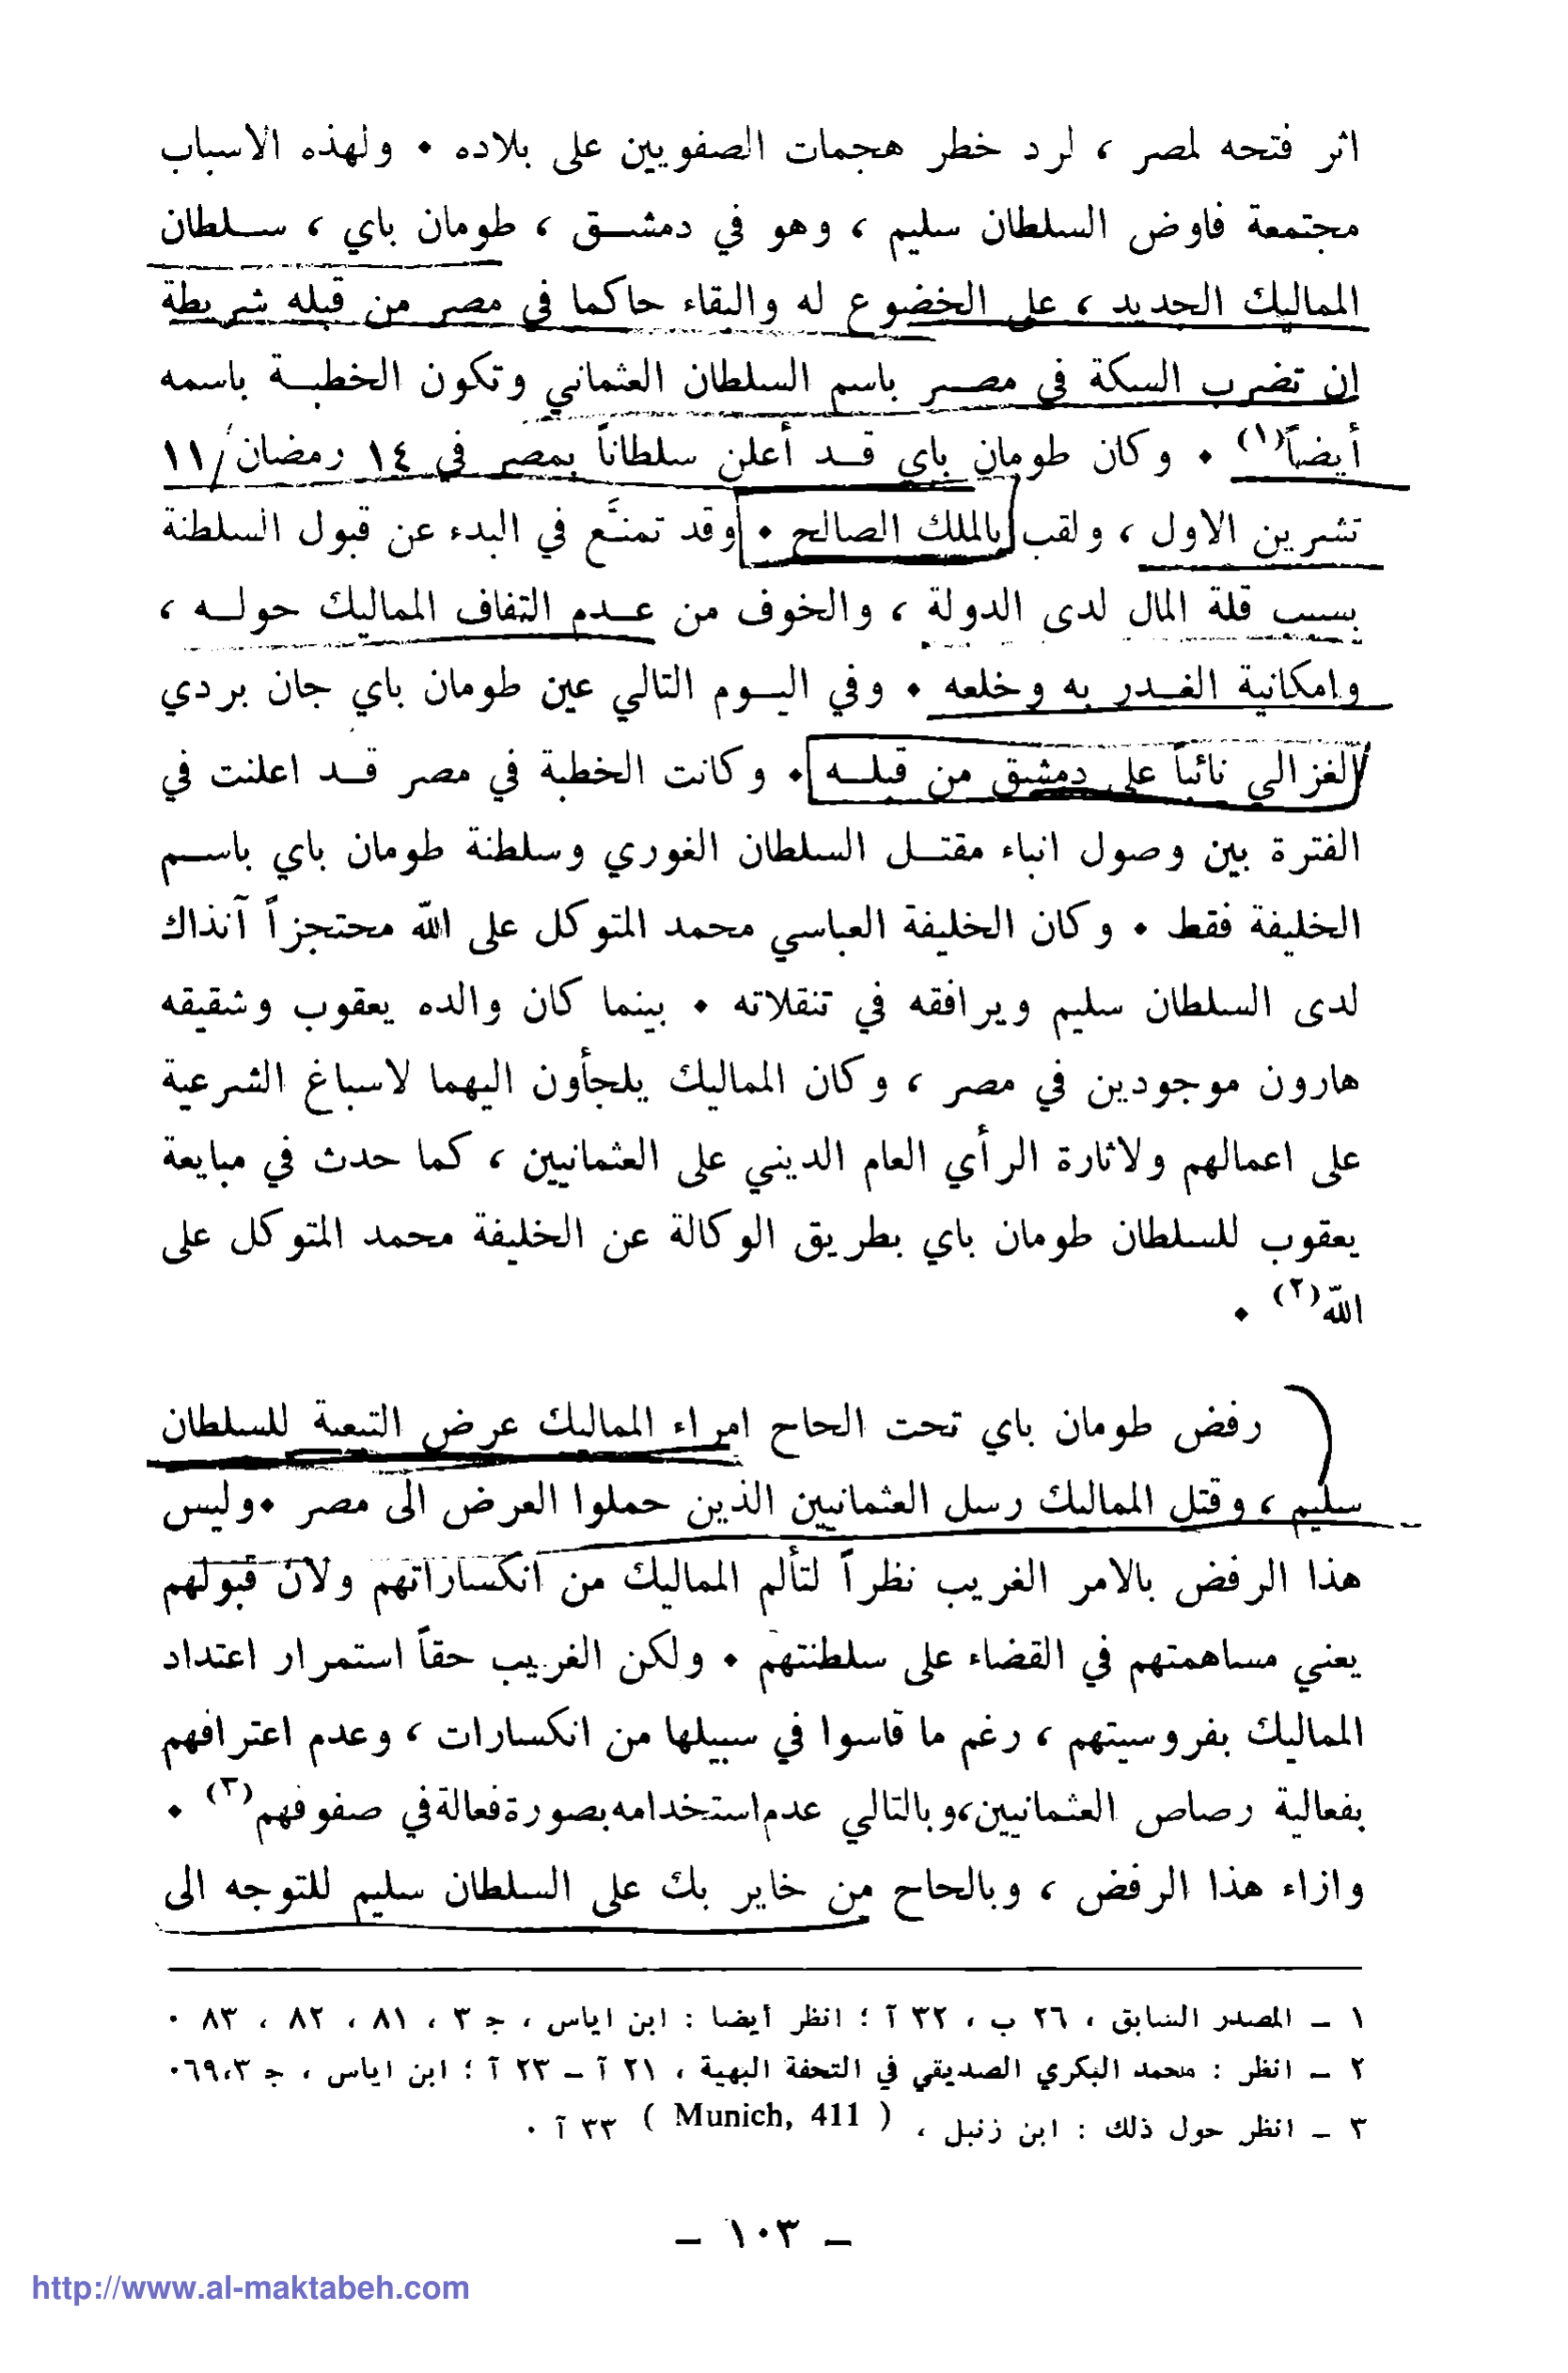 اثر فتحه لمصر ، لرد خطر هجمات الصفويين على بلاده . ولهذه الاسباب
مجتمعة فاوض السلطان سليم ، وهو في دمشق ، طومان باي ، سلطان
المماليك الجديد ، على الخضوع له والبقاء حاكما في مصر من قبله شريطة
ان تضرب السكة في مصر باسم السلطان العثماني وتكون الخطبة باسمه
أيضاً(١) . وكان طومان باي قد أعلن سلطاناً بمصر في ١٤ رمضان/١١
تشرين الاول ، ولقب بالملك الصالح . وقد تمنَّع في البدء عن قبول السلطنة
بسبب قلة المال لدى الدولة ، والخوف من عدم التفاف المماليك حوله ،
وامكانية الغدر به وخلعه . وفي اليوم التالي عين طومان باي جان بردي
الغزالي نائباً على دمشق من قبله . وكانت الخطبة في مصر قد اعلنت في
الفترة بين وصول انباء مقتل السلطان الغوري وسلطنة طومان باي باسم
الخليفة فقط . وكان الخليفة العباسي محمد المتوكل على الله محتجزاً آنذاك
لدى السلطان سليم ويرافقه في تنقلاته . بينما كان والده يعقوب وشقيقه
هارون موجودين في مصر ، وكان المماليك يلجأون اليهما لاسباغ الشرعية
على اعمالهم ولاثارة الرأي العام الديني على العثمانيين ، كما حدث في مبايعة
يعقوب للسلطان طومان باي بطريق الوكالة عن الخليفة محمد المتوكل على
الله(٢) .
رفض طومان باي تحت الحاح امراء المماليك عرض التبعية للسلطان
سليم ، وقتل المماليك رسل العثمانيين الذين حملوا العرض الى مصر .وليس
هذا الرفض بالامر الغريب نظراً لتألم المماليك من انكساراتهم ولان قبولهم
يعني مساهمتهم في القضاء على سلطنتهم . ولكن الغريب حقاً استمرار اعتداد
المماليك بفروسيتهم ، رغم ما قاسوا في سبيلها من انكسارات ، وعدم اعترافهم
بفعالية رصاص العثمانيين،وبالتالي عدم استخدامه بصورة فعالة في صفوفهم(٣) .
وازاء هذا الرفض ، وبالحاح من خاير بك على السلطان سليم للتوجه الى
١ – المصدر السابق ، ٢٦ ب ، ٣٢ آ ؛ انظر أيضا : ابن اياس ، ج ٣ ، ٨١ ، ٨٢ ، ٨٣ .
٢ – انظر : محمد البكري الصديقي في التحفة البهية ، ٢١ آ – ٢٣ آ ؛ ابن اياس ، ج ٦٩،٣.
٣ – انظر حول ذلك : ابن زنبل ، ( Munich, 411 ) ٣٣ آ .
– ١٠٣ –
http://www.al-maktabeh.com